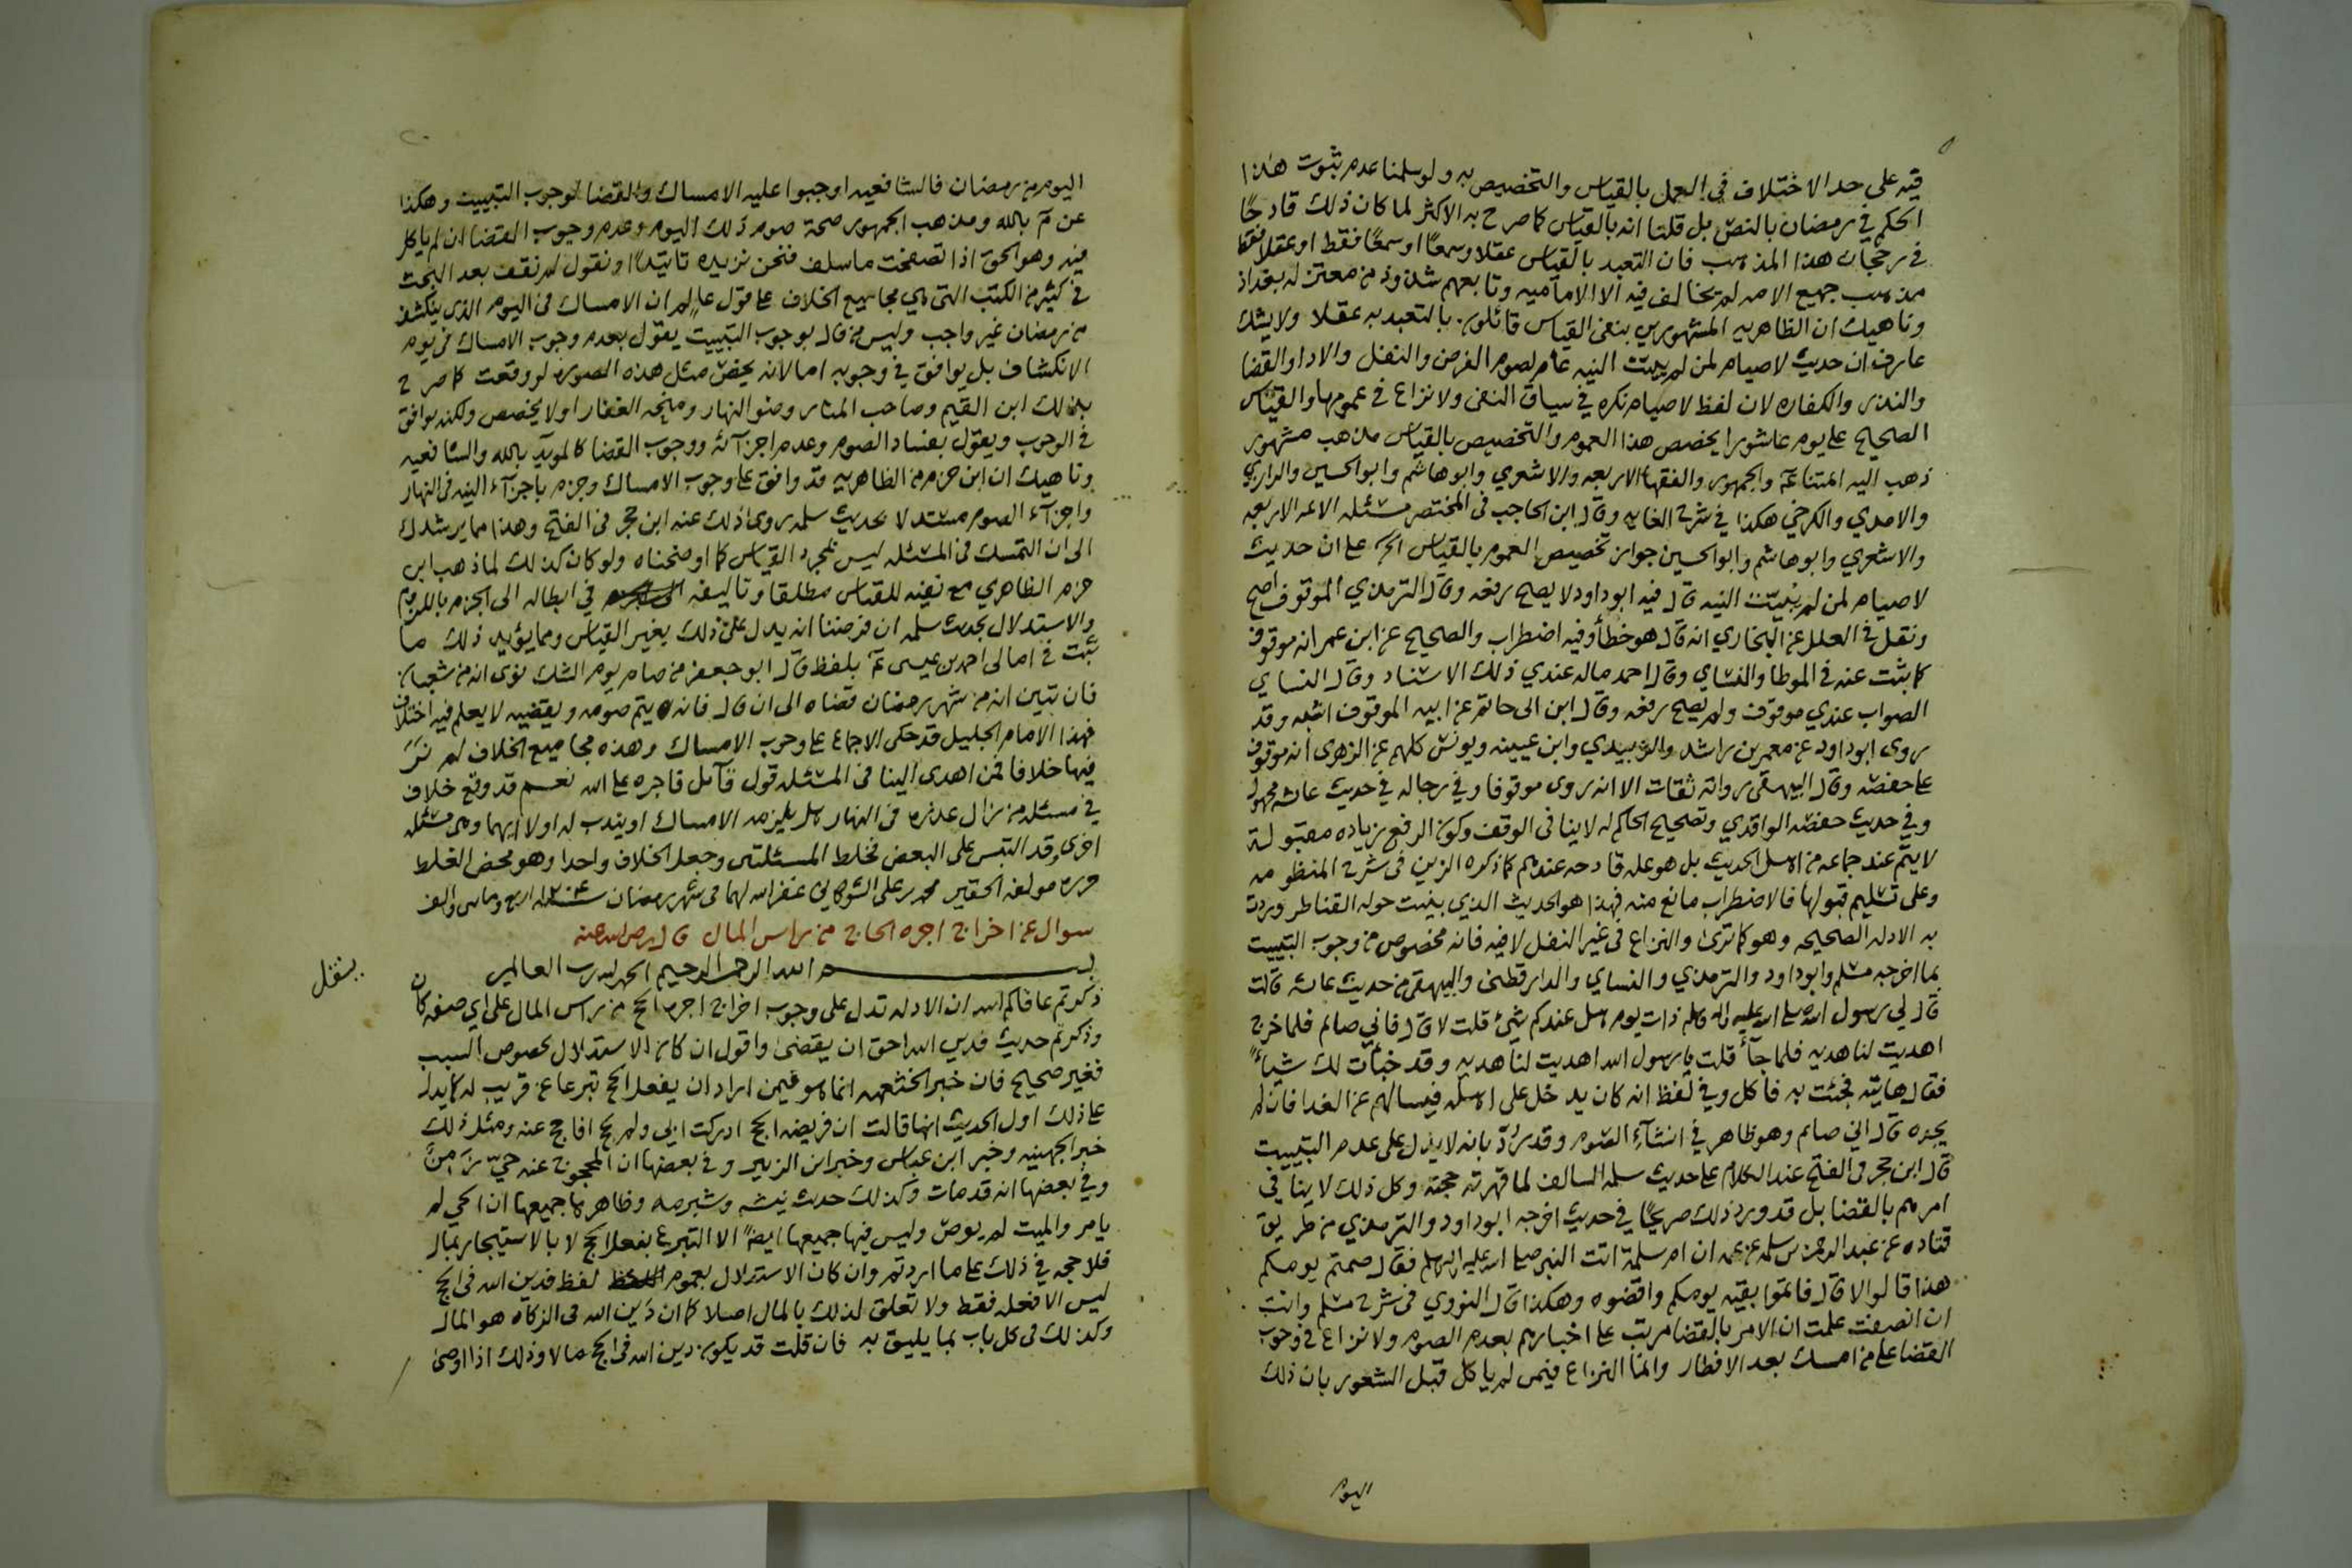 فيه على حد الاختلاف في العمل بالقياس والتخصيص به ولو سلمنا عدم ثبوت هذا
الحكم في رمضان بالنص بل قلنا انه بالقياس كما صرح به الاكثر لما كان ذلك قادحًا
في رجحان هذا المذهب فان التعبد بالقياس عقلا وسمعًا او سمعًا فقط او عقلا فقط
مذهب جميع الامه لم يخالف فيه الا الاماميه وتابعهم شذوذ من معتزله بغداد
وناهيك ان الظاهريه المشهورين بنفي القياس قائلون بالتعبد به عقلا ولا يشك
عارف ان حديث لا صيام لمن لم يبيّت النيه عام لصوم الفرض والنفل والادا والقضا
والنذر والكفاره لان لفظ لا صيام نكره في سياق النفي ولا نزاع في عمومها والقياس
الصحيح على يوم عاشورا يخصص هذا العموم والتخصيص بالقياس مذهب مشهور
ذهب اليه ائمتنا عم والجمهور والفقها الاربعه والاشعري وابو هاشم وابو الحسين والرازي
والامدي والكرخي هكذا في شرح الغايه وقال ابن الحاجب في المختصر مسئله الائمه الاربعه
والاشعري وابو هاشم وابو الحسين جواز تخصيص العموم بالقياس الخ على ان حديث
لا صيام لمن لم يبيّت النيه قال فيه ابو داود لا يصح رفعه وقال الترمذي الموقوف اصح
ونقل في العلل عن البخاري انه قال هو خطأ وفيه اضطراب والصحيح عن ابن عمر انه موقوف
كما ثبت عنه في الموطا والنساي وقال احمد ماله عندي ذلك الاسناد وقال النساي
الصواب عندي موقوف ولم يصح رفعه وقال ابن ابى حاتم عن ابيه الموقوف اشبه وقد
روى ابو داود عن معمر بن راشد والزبيدي وابن عيينه ويونس كلهم عن الزهرى انه موقوف
على حفصه وقال البيهقي رواته ثقات الا انه روى موقوفا وفي رجاله في حديث عائشه مجهول
وفي حديث حفصه الواقدي وتصحيح الحاكم له لا ينافى الوقف وكون الرفع زياده مقبولة
لا يتم عند جماعه من اهل الحديث بل هو عله قادحه عندهم كما ذكره الزين في شرح المنظومه
وعلى تسليم قبولها فالاضطراب مانع منه فهذا هو الحديث الذي بنيت حوله القناطر وردت
به الادله الصحيحه وهو كما ترى والنزاع في غير النفل لا فيه فانه مخصوص من وجوب التبييت
بما اخرجه مسلم وابو داود والترمذي والنساي والدارقطني والبيهقي من حديث عائشه قالت
قال لي رسول الله صلى الله عليه واله وسلم ذات يوم هل عندكم شئ قلت لا قال فاني صائم فلما خرج
اهديت لنا هديه فلما جآء قلت يا رسول الله اهديت لنا هديه وقد خبأت لك شيأً
فقال هاتيه فجئت به فاكل وفي لفظ انه كان يدخل على اهله فيسالهم عن الغدا فان لم
يجده قال اني صائم وهو ظاهر في انشآء الصوم وقد رُدّ بانه لا يدل على عدم التبييت
قال ابن حجر في الفتح عند الكلام على حديث سلمه السالف لما قهرته حجته وكل ذلك لا ينافي
امرهم بالقضا بل قد ورد ذلك صريحًا في حديث اخرجه ابو داود والترمذي من طريق
قتاده عن عبد الرحمن بن سلمه عن عمه ان ام سلمة اتت النبي صلى الله عليه واله وسلم فقال صمتم يومكم
هذا قالوا لا قال فاتموا بقيه يومكم واقضوه وهكذا قال النووي في شرح مسلم وانت
ان انصفت علمت ان الامر بالقضا مرتب على اخبارهم بعدم الصوم ولا نزاع في وجوب
القضا على من امسك بعد الافطار وانما النزاع فيمن لم ياكل قبل الشعور بان ذلك
اليوم
اليوم من رمضان فالشافعيه اوجبوا عليه الامساك والقضا لوجوب التبييت وهكذا
عن م بالله ومذهب الجمهور صحة صوم ذلك اليوم وعدم وجوب القضا ان لم ياكل
فيه وهو الحق اذا تصفحت ما سلف فنحن نزيده تائيدًا ونقول لم نقف بعد البحث
في كثير من الكتب التى هي مجاميع الخلاف على قول عالم ان الامساك في اليوم الذي ينكشف
من رمضان غير واجب وليس من قال بوجوب التبييت يقول بعدم وجوب الامساك في يوم
الانكشاف بل يوافق في وجوبه اما لانه يخص مثل هذه الصوره لو وقعت كما صرح
بذلك ابن القيم وصاحب المنار وضو النهار ومنحه الغفار او لا يخصص ولكنه يوافق
في الوجوب ويقول بفساد الصوم وعدم اجزآئه ووجوب القضا كالمويد بالله والشافعيه
وناهيك ان ابن حزم من الظاهريه قد وافق على وجوب الامساك وجزم باجزآء النيه في النهار
واجزآء الصوم مستدلا بحديث سلمه روى ذلك عنه ابن حجر في الفتح وهذا مما يرشدك
الى ان التمسك في المسئله ليس بمجرد القياس كما اوضحناه ولو كان كذلك لما ذهب ابن
حزم الظاهري مع نفيه للقياس مطلقا وتاليفه في ابطاله الى الجزم باللزوم
والاستدلال بحديث سلمه ان فرضنا انه يدل على ذلك بغير القياس ومما يؤيد ذلك ما
ثبت في امالى احمد بن عيسى عم بلفظ قال ابو جعفر من صام يوم الشك نوى انه من شعبان
فان تبين انه من شهر رمضان قضاه الى ان قال فانه يتم صومه ويقضيه لا يعلم فيه اختلاف
فهذا الامام الجليل قد حكى الاجماع على وجوب الامساك وهذه مجاميع الخلاف لم نرَ
فيها خلافا فمن اهدى الينا في المسئله قول قآئل فاجره على الله نعم قد وقع خلاف
في مسئله من زال عذره في النهار هل يلزمه الامساك او يندب له او لا ايهما وهى مسئله
اخرى وقد التبس على البعض فخلط المسئلتين وجعل الخلاف واحدا وهو محض الغلط
حرره مولفه الحقير محمد بن علي الشوكاني غفر الله لهما في شهر رمضان سنه ١٢٠٤ اربع ومايتين والف
سوال عن اخراج اجره الحاج من راس المال قال رضى الله عنه
بسم الله الرحمن الرحيم الحمد لله رب العالمين
ذكرتم عافاكم الله ان الادله تدل على وجوب اخراج اجره الحج من راس المال على اي صفه كان
وذكرتم حديث فدين الله احق ان يقضى واقول ان كان الاستدلال بخصوص السبب
فغير صحيح فان خبر الخثعميه انما هو فيمن اراد ان يفعل الحج تبرعا عن قريب له كما يدل
على ذلك اول الحديث انها قالت ان فريضه الحج ادركت ابي ولم يحج افاحج عنه ومثل ذلك
خبر الجهنيه وخبر ابن عباس وخبر ابن الزبير وفي بعضها ان المحجوج عنه حيّ زَمِن
وفي بعضها انه قد مات وكذلك حديث نبيشه وشبرمه وظاهرها جميعها ان الحي لم
يامر والميت لم يوص وليس فيها جميعها ايضًا الا التبرع بفعل الحج لا بالاستيجار بمال
فلا حجه في ذلك على ما اردتم وان كان الاستدلال بعموم لفظ فدين الله في الحج
ليس الا فعله فقط ولا تعلق لذلك بالمال اصلا كما ان دَين الله في الزكاه هو المال
وكذلك في كل باب بما يليق به فان قلت قد يكون دين الله في الحج مالا وذلك اذا اوصى